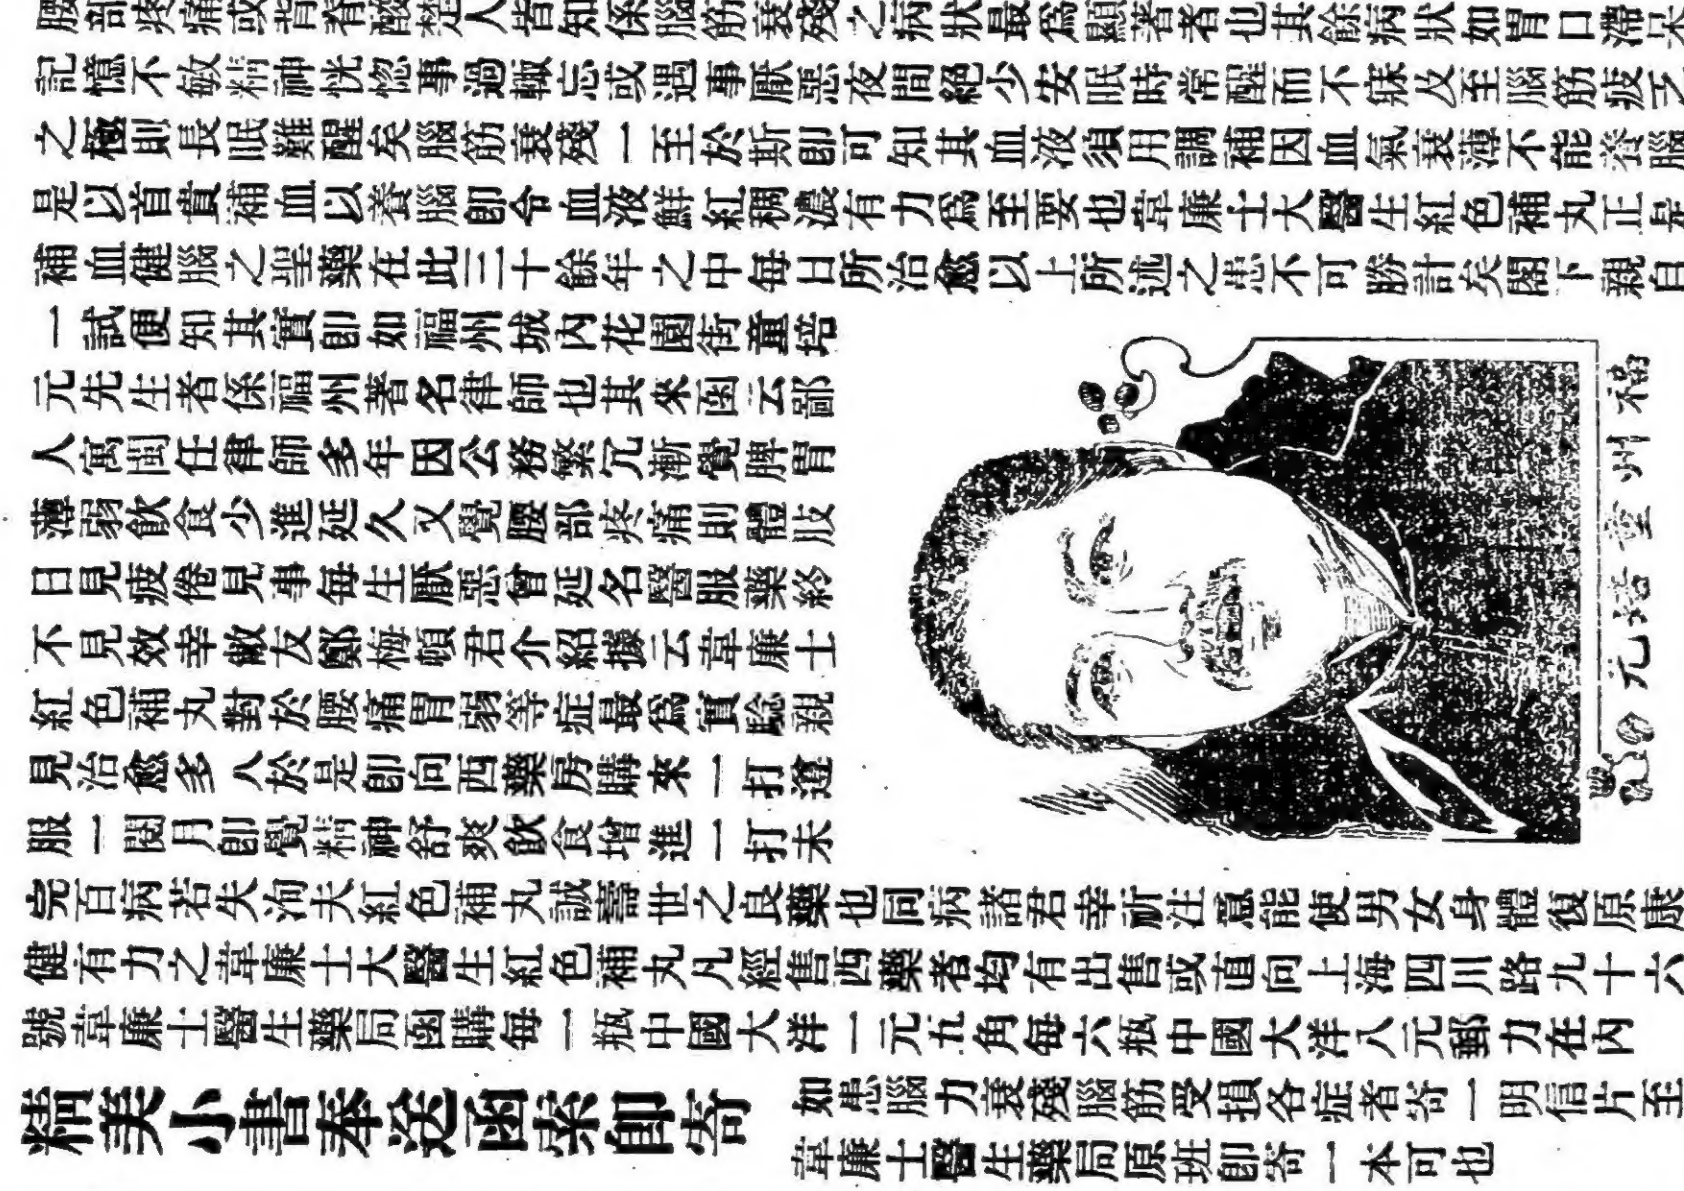 腰部疼痛或背脊酸楚人皆知係腦筋衰殘之病狀最爲顯著者也其餘病狀如胃口滯呆
記憶不敏精神恍惚事過輒忘或遇事厭惡夜間絕少安眠時常醒而不寐及至腦筋疲乏
之極則長眠難醒矣腦筋衰殘一至於斯卽可知其血液須用調補因血氣衰薄不能養腦
是以首貴補血以養腦卽令血液鮮紅稠濃有力爲至要也韋廉士大醫生紅色補丸正是
補血健腦之聖藥在此三十餘年之中每日所治愈以上所述之患不可勝計矣閣下親自
一試便知其實卽如福州城內花園街童培
元先生者係福州著名律師也其來函云鄙
人寓閩任律師多年因公務繁冗漸覺脾胃
薄弱飲食少進延久又覺腰部疼痛則體肢
日見疲倦見事每生厭惡曾延名醫服藥終
不見效幸敝友鄭梅頓君介紹據云韋廉士
紅色補丸對於腰痛胃弱等症最爲實驗親
見治愈多人於是卽向西藥房購來一打遵
服一閱月卽覺精神舒爽飲食增進一打未
完百病若失洵夫紅色補丸誠壽世之良藥也同病諸君幸祈注意能使男女身體復原康
健有力之韋廉士大醫生紅色補丸凡經售西藥者均有出售或直向上海四川路九十六
號韋廉士醫生藥局函購每一瓶中國大洋一元五角每六瓶中國大洋八元郵力在內
福州童培元
精美小書奉送函索卽寄
如患腦力衰殘腦筋受損各症者寄一明信片至
韋廉士醫生藥局原班卽寄一本可也